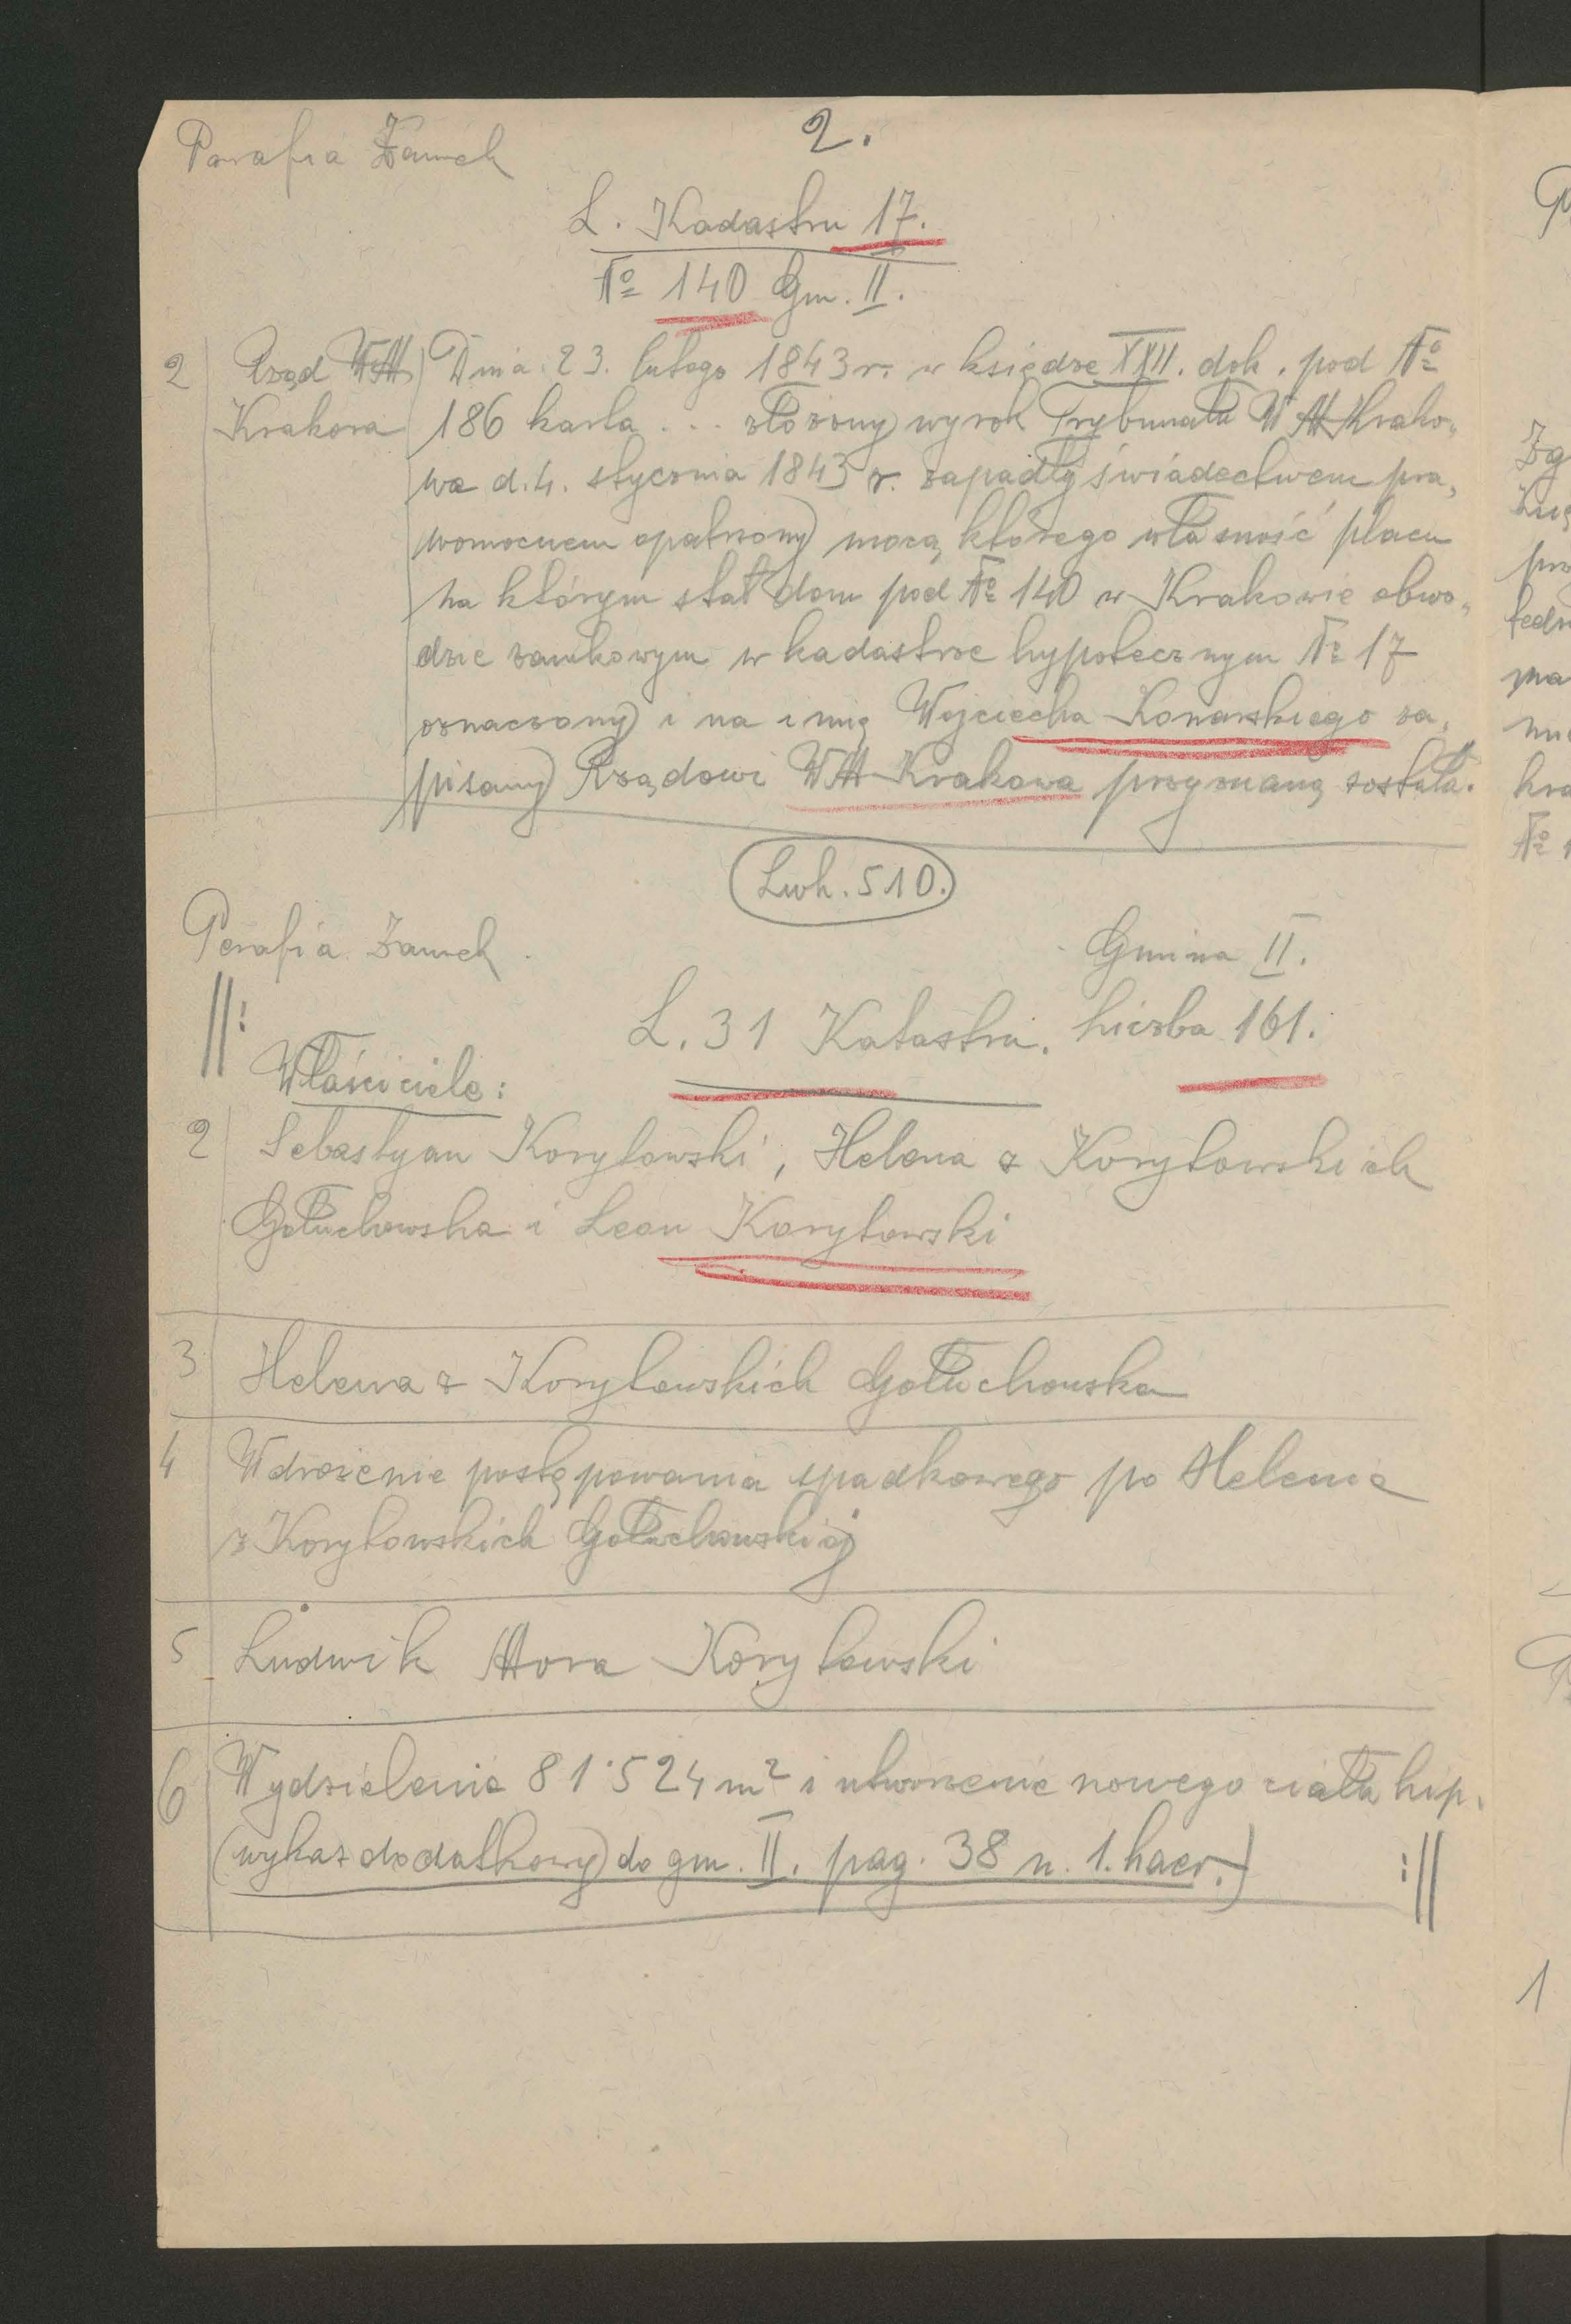 2.
Parafia Zamek
L. Kadastru 17.
No 140 Gm. II.
2 Rząd WM Krakowa
Dnia 23. lutego 1843 r. w księdze XXII. dok. pod No
186 karta ... złożony wyrok Trybunału W M Krako„
wa d. 4. stycznia 1843 r. zapadły świadectwem pra„
womocnem opatrzony mocą którego własność placu
na którym stał dom pod No 140 w Krakowie obwo„
dzie zamkowym w kadastrze hypotecznym No 17
oznaczony i na imię Wojciecha Konarskiego za„
pisany Rządowi WM Krakowa przyznaną została.
Lwh. 510.
Parafia Zamek.
Gmina II.
L. 31 Katastru. liczba 161.
||:
Właściciele:
2 Sebastyan Korytowski, Helena z Korytowskich
Gołuchowska i Leon Korytowski
3 Helena z Korytowskich Gołuchowska
4 Wdrożenie postępowania spadkowego po Helenie
z Korytowskich Gołuchowskiej
5 Ludwik Mora Korytowski
6 Wydzielenie 81·524 m² i utworzenie nowego ciała hip.
(wykaz dodatkowy do gm. II. pag. 38 n. 1. haer.) :||